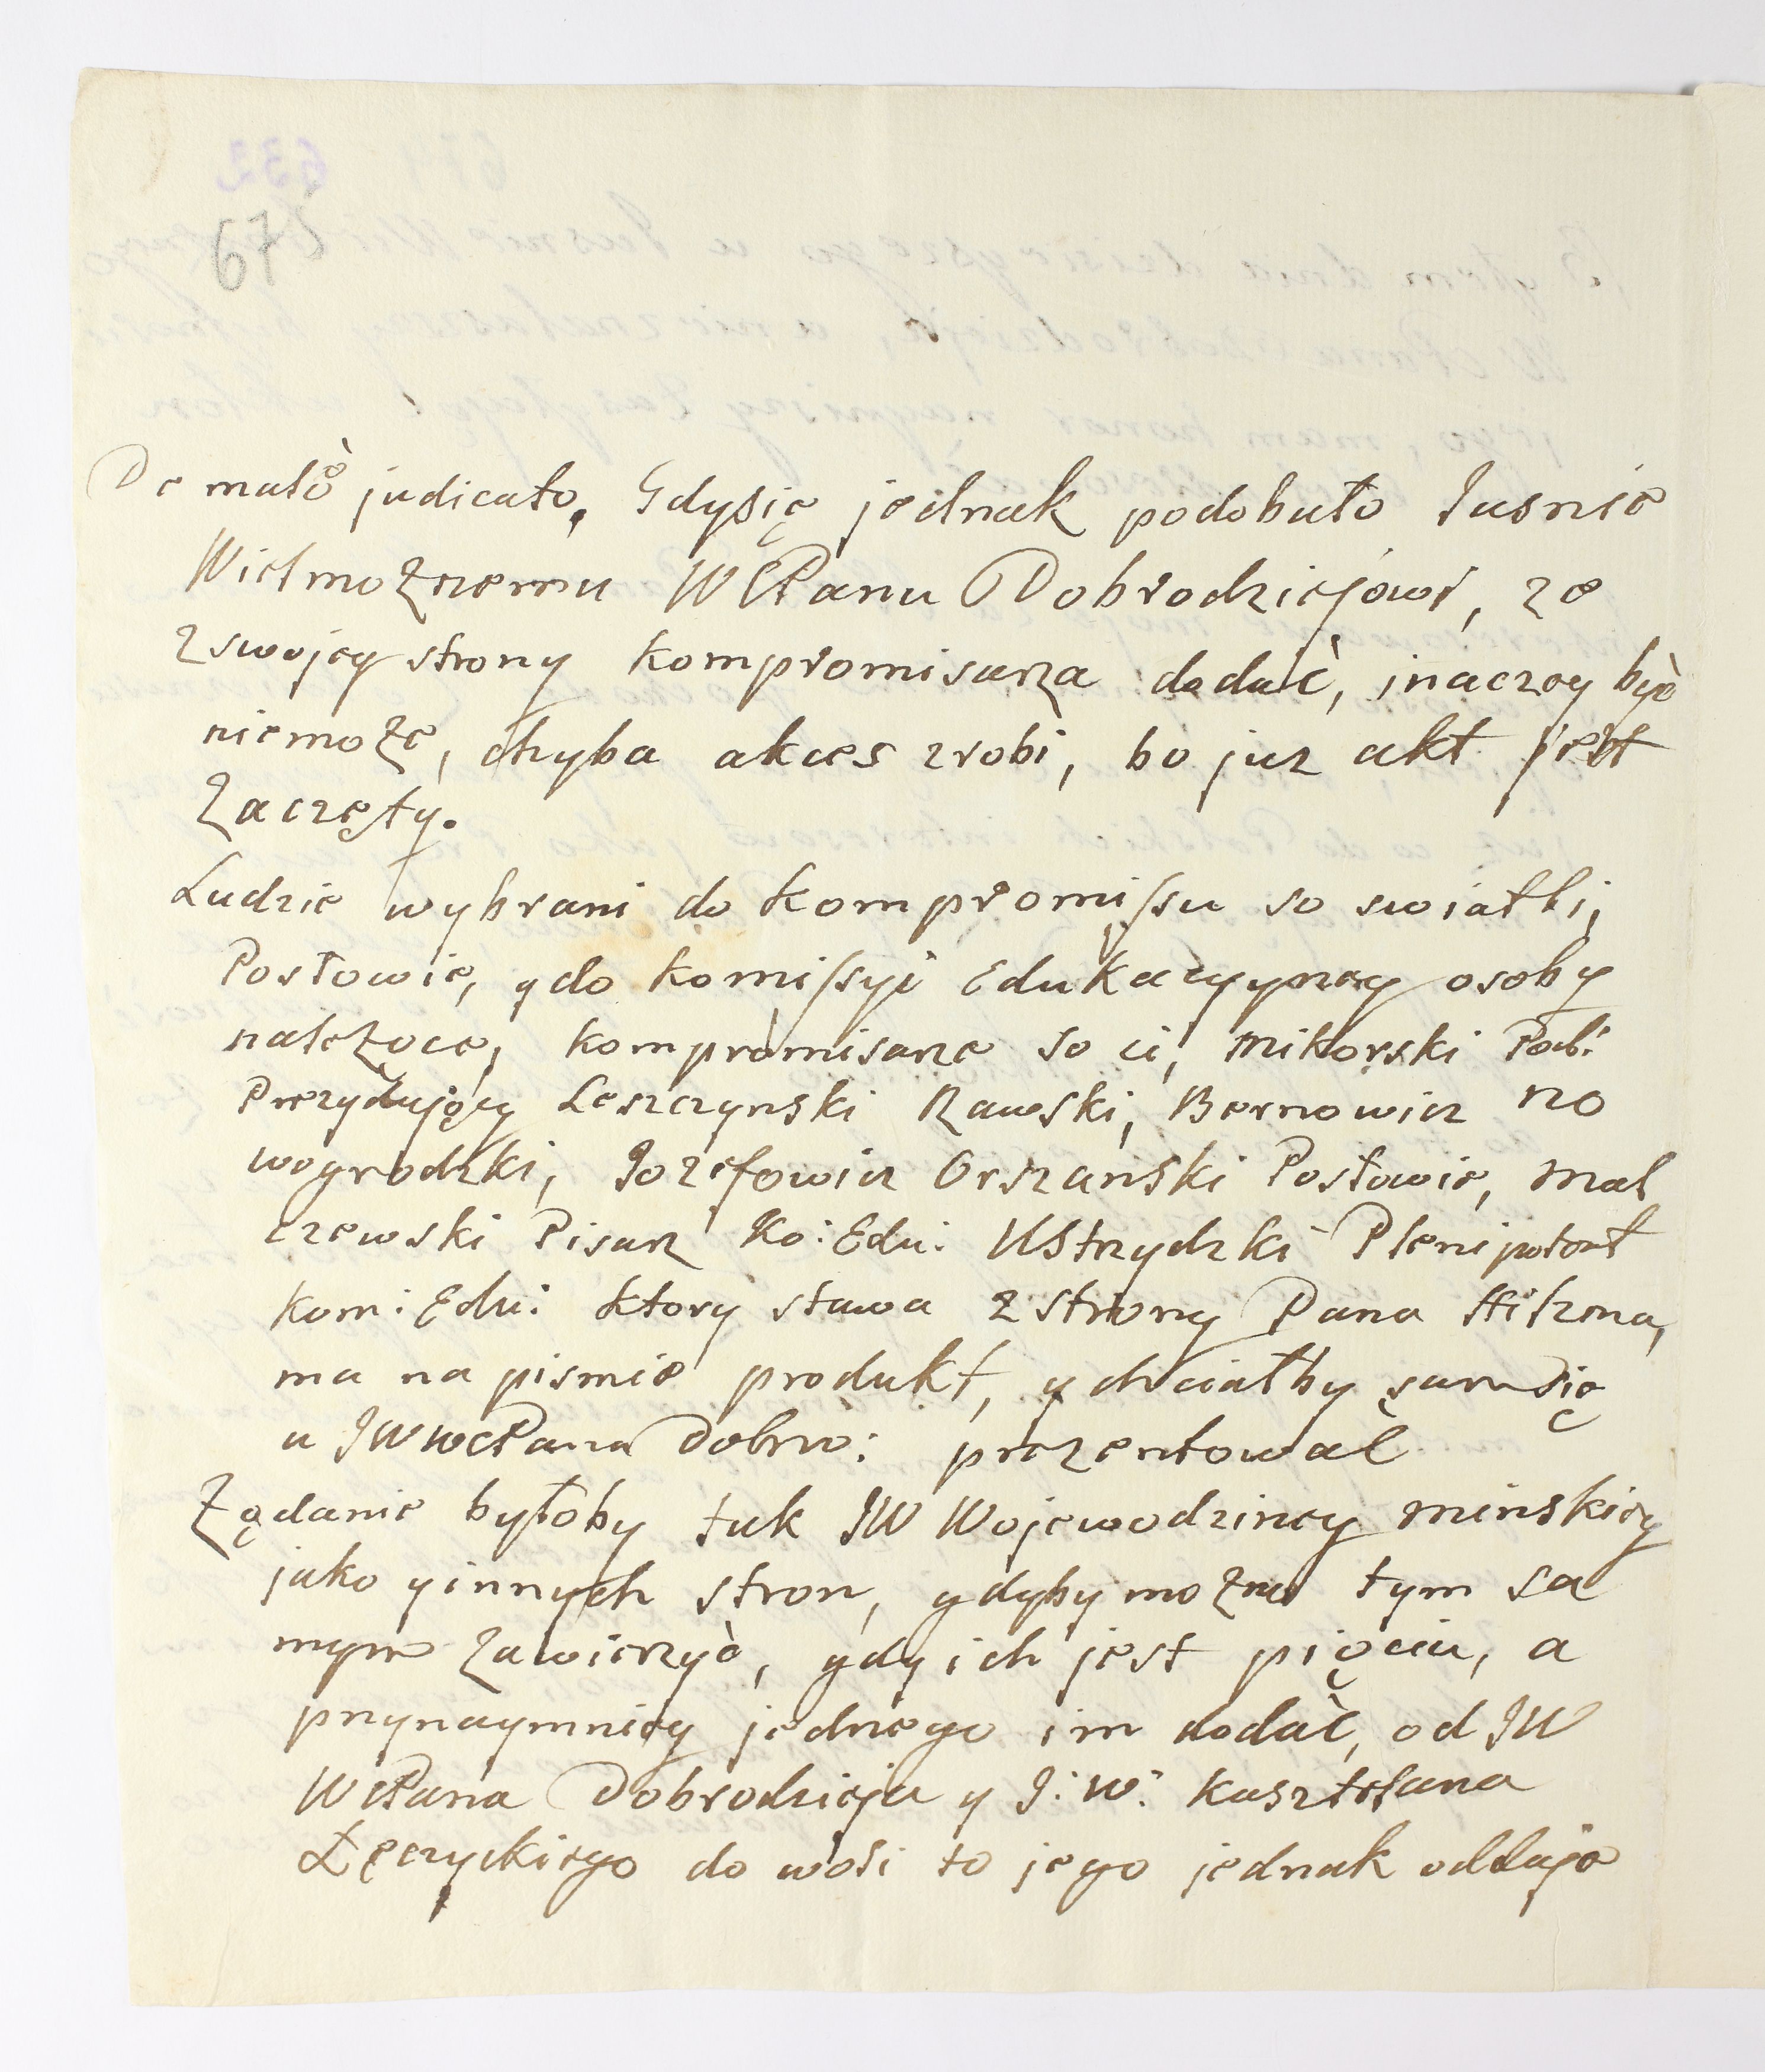 675
De malo judicato, Gdysię jednak podobało Jasnie
Wielmożnemu WCPanu Dobrodziejowi, ze
z swojey strony kompromisarza dodać, inaczey być
niemoże, chyba akces zrobi, bo juz akt jest
Zaczęty.
Ludzie wybrani do kompromissu so swiatli,
Posłowie, y do komissyi Edukacyyney osoby
należoce, kompromisarze so ci, Mikorski Pod:
Prezydujący Leszczynski Rawski, Bernowicz No
wogrodzki, Jozefowicz Orszański Posłowie, Mal
czewski Pisarz Ko: Edu: Ustrzydzki Plenipotent
Kom: Edu: Ktory stawa z strony Pana Hilzena,
ma na pismie produkt, y chciałby sam się
u JWWCPana Dobro: prezentować
Żądanie byłoby tak JW Wojewodziney Minskiey
jako y innych stron, gdyby można tym sa
mym zawierzyć, gdy ich jest pięciu, a
przynaymniey jednego im dodać, od JW
WCPana Dobrodzieja y J: W: Kasztelana
Łęczyckiego do woli to jego jednak oddaje